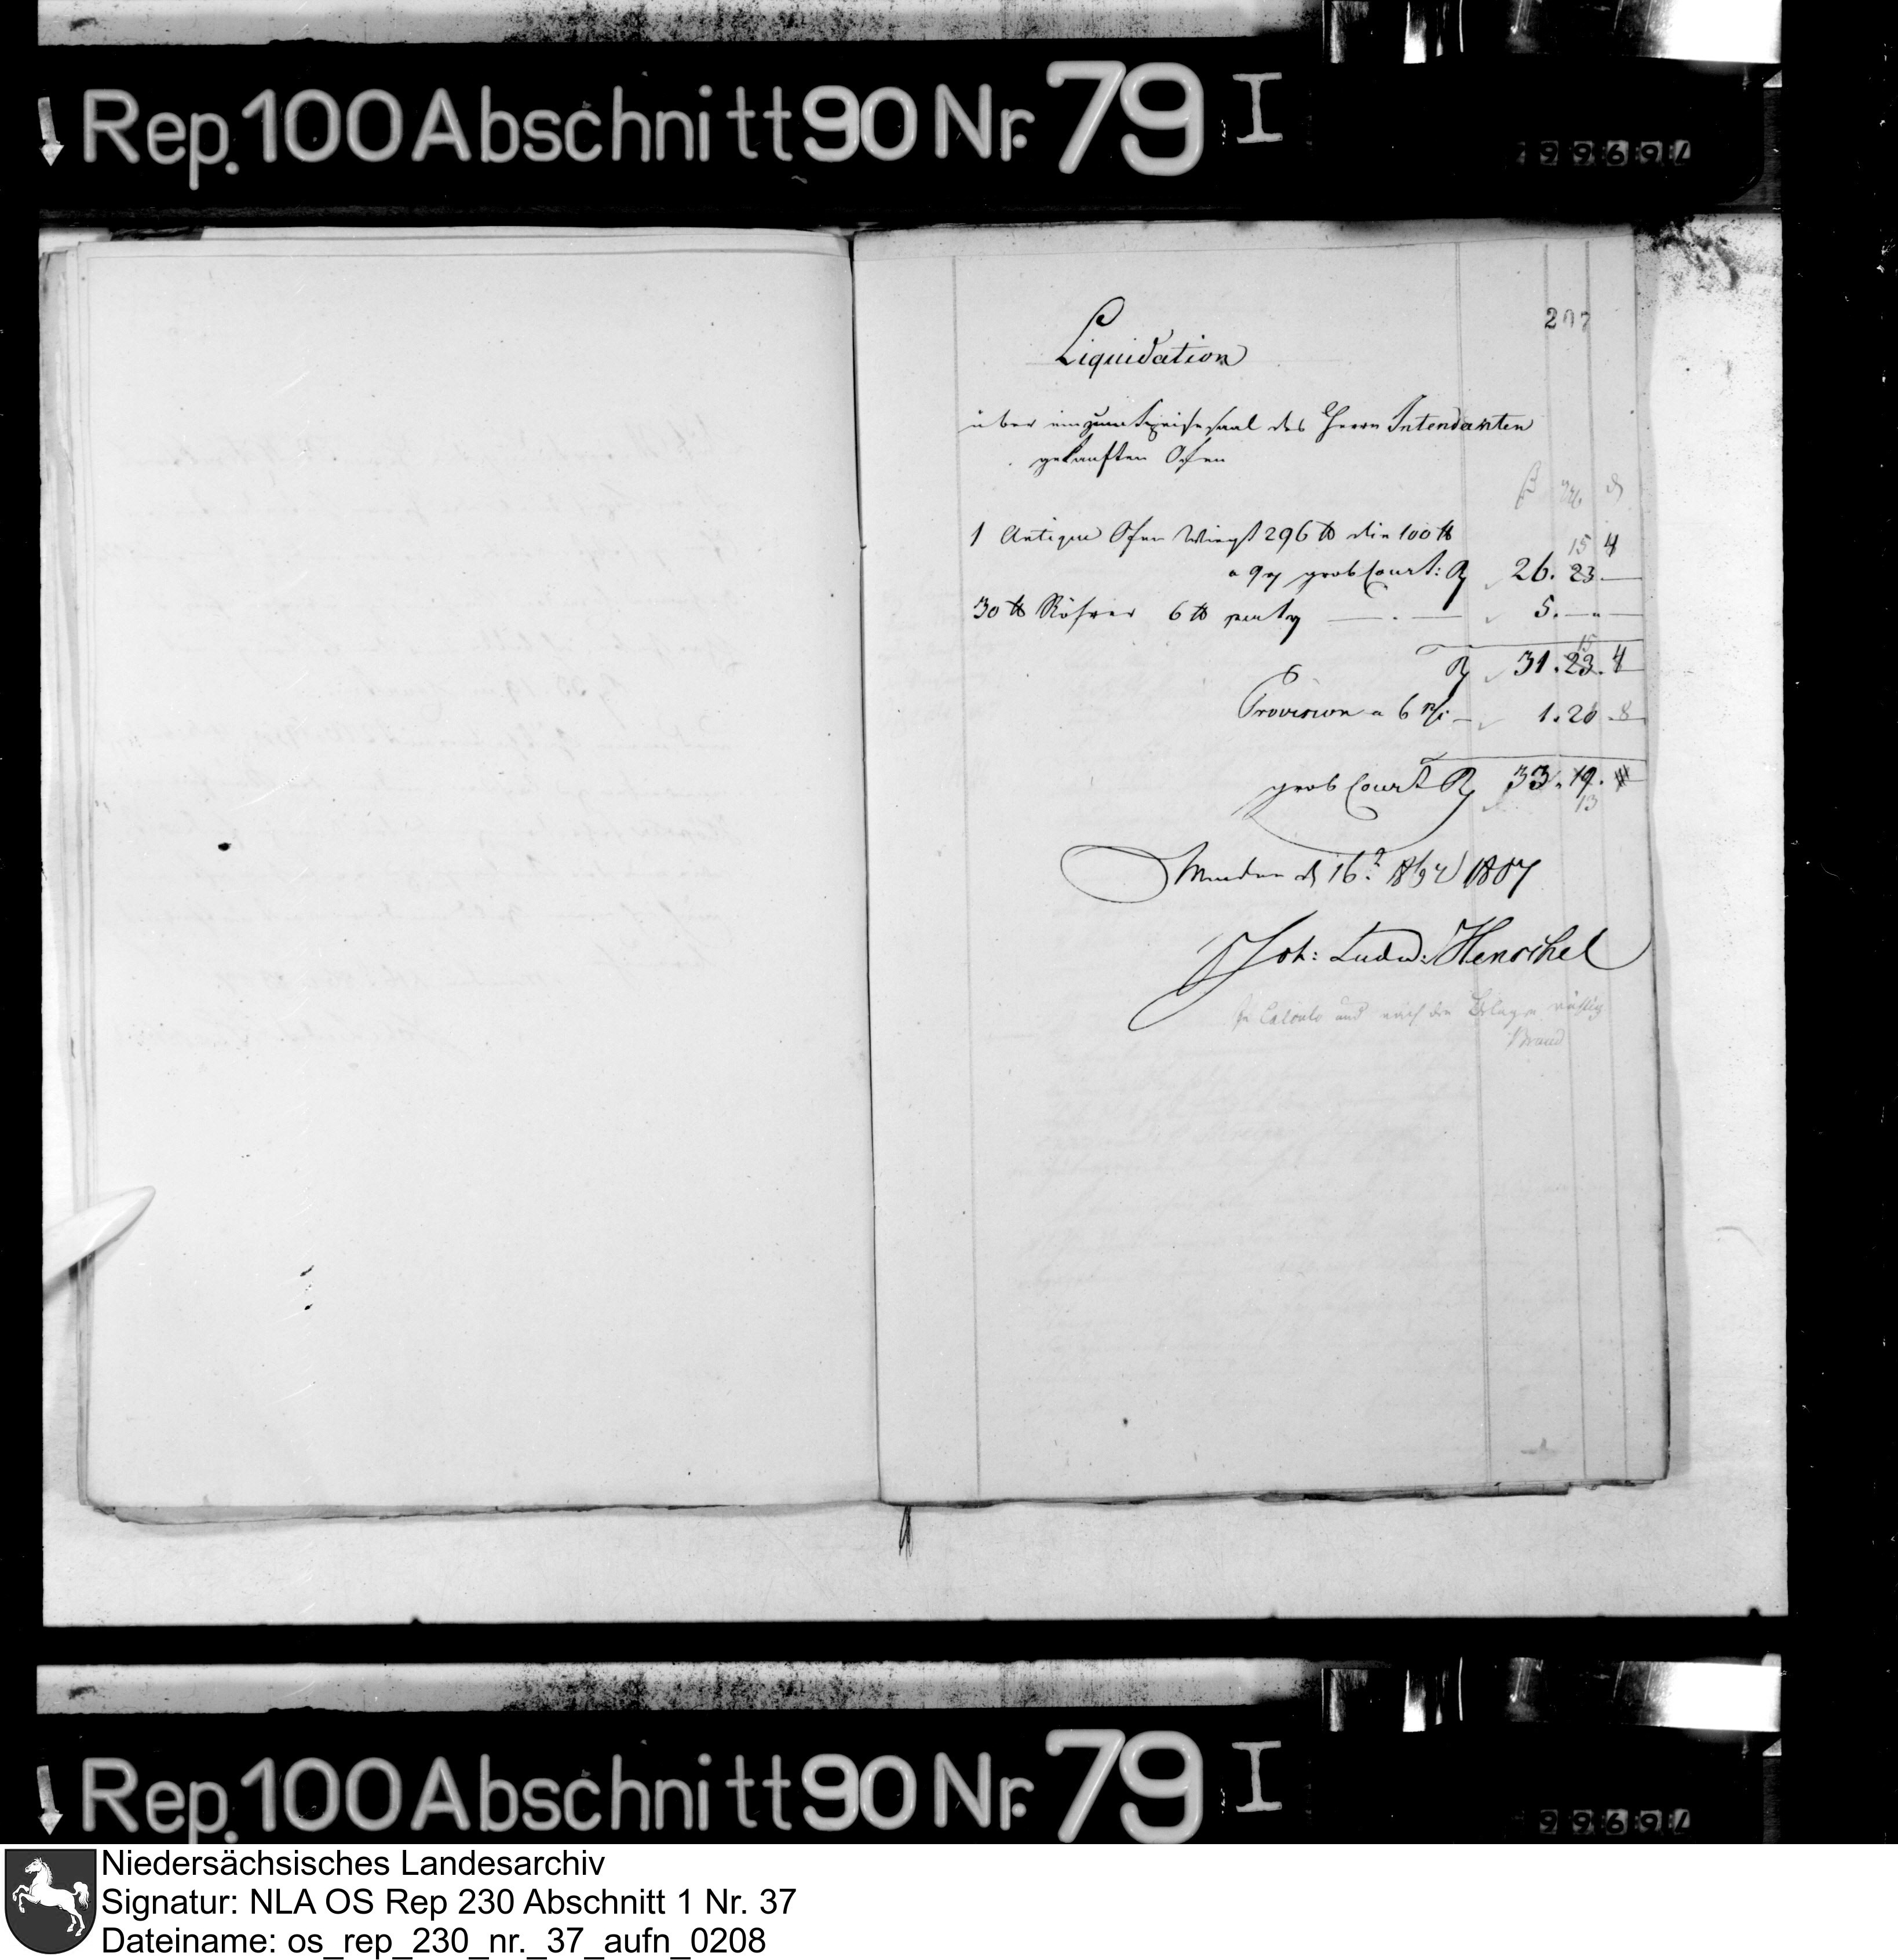 Rep. 100 Abschnitt 90 Nr. 79 I
99697
207
Liquidation
über einzum Speisesaal des Herrn Intendanten
gekauften Ofen
1 Antique Ofen Wiegt 296 ℔ die 100 ℔
15 4
a 9 grob Court: 26. 23 —
30 ℔ Röhren 6 ℔ 5. — " —
15
31. 23. 4
Provision a 6 1. 20. 8
grob Court 33. 19.
13
Minden d 16t 1807
Joh: Ludw: Henschel
In Calculo und nach den Belagen richtig
Rep. 100 Abschnitt 90 Nr. 79 I
99697
Niedersächsisches Landesarchiv
Signatur: NLA OS Rep 230 Abschnitt 1 Nr. 37
Dateiname: os_rep_230_nr._37_aufn_0208